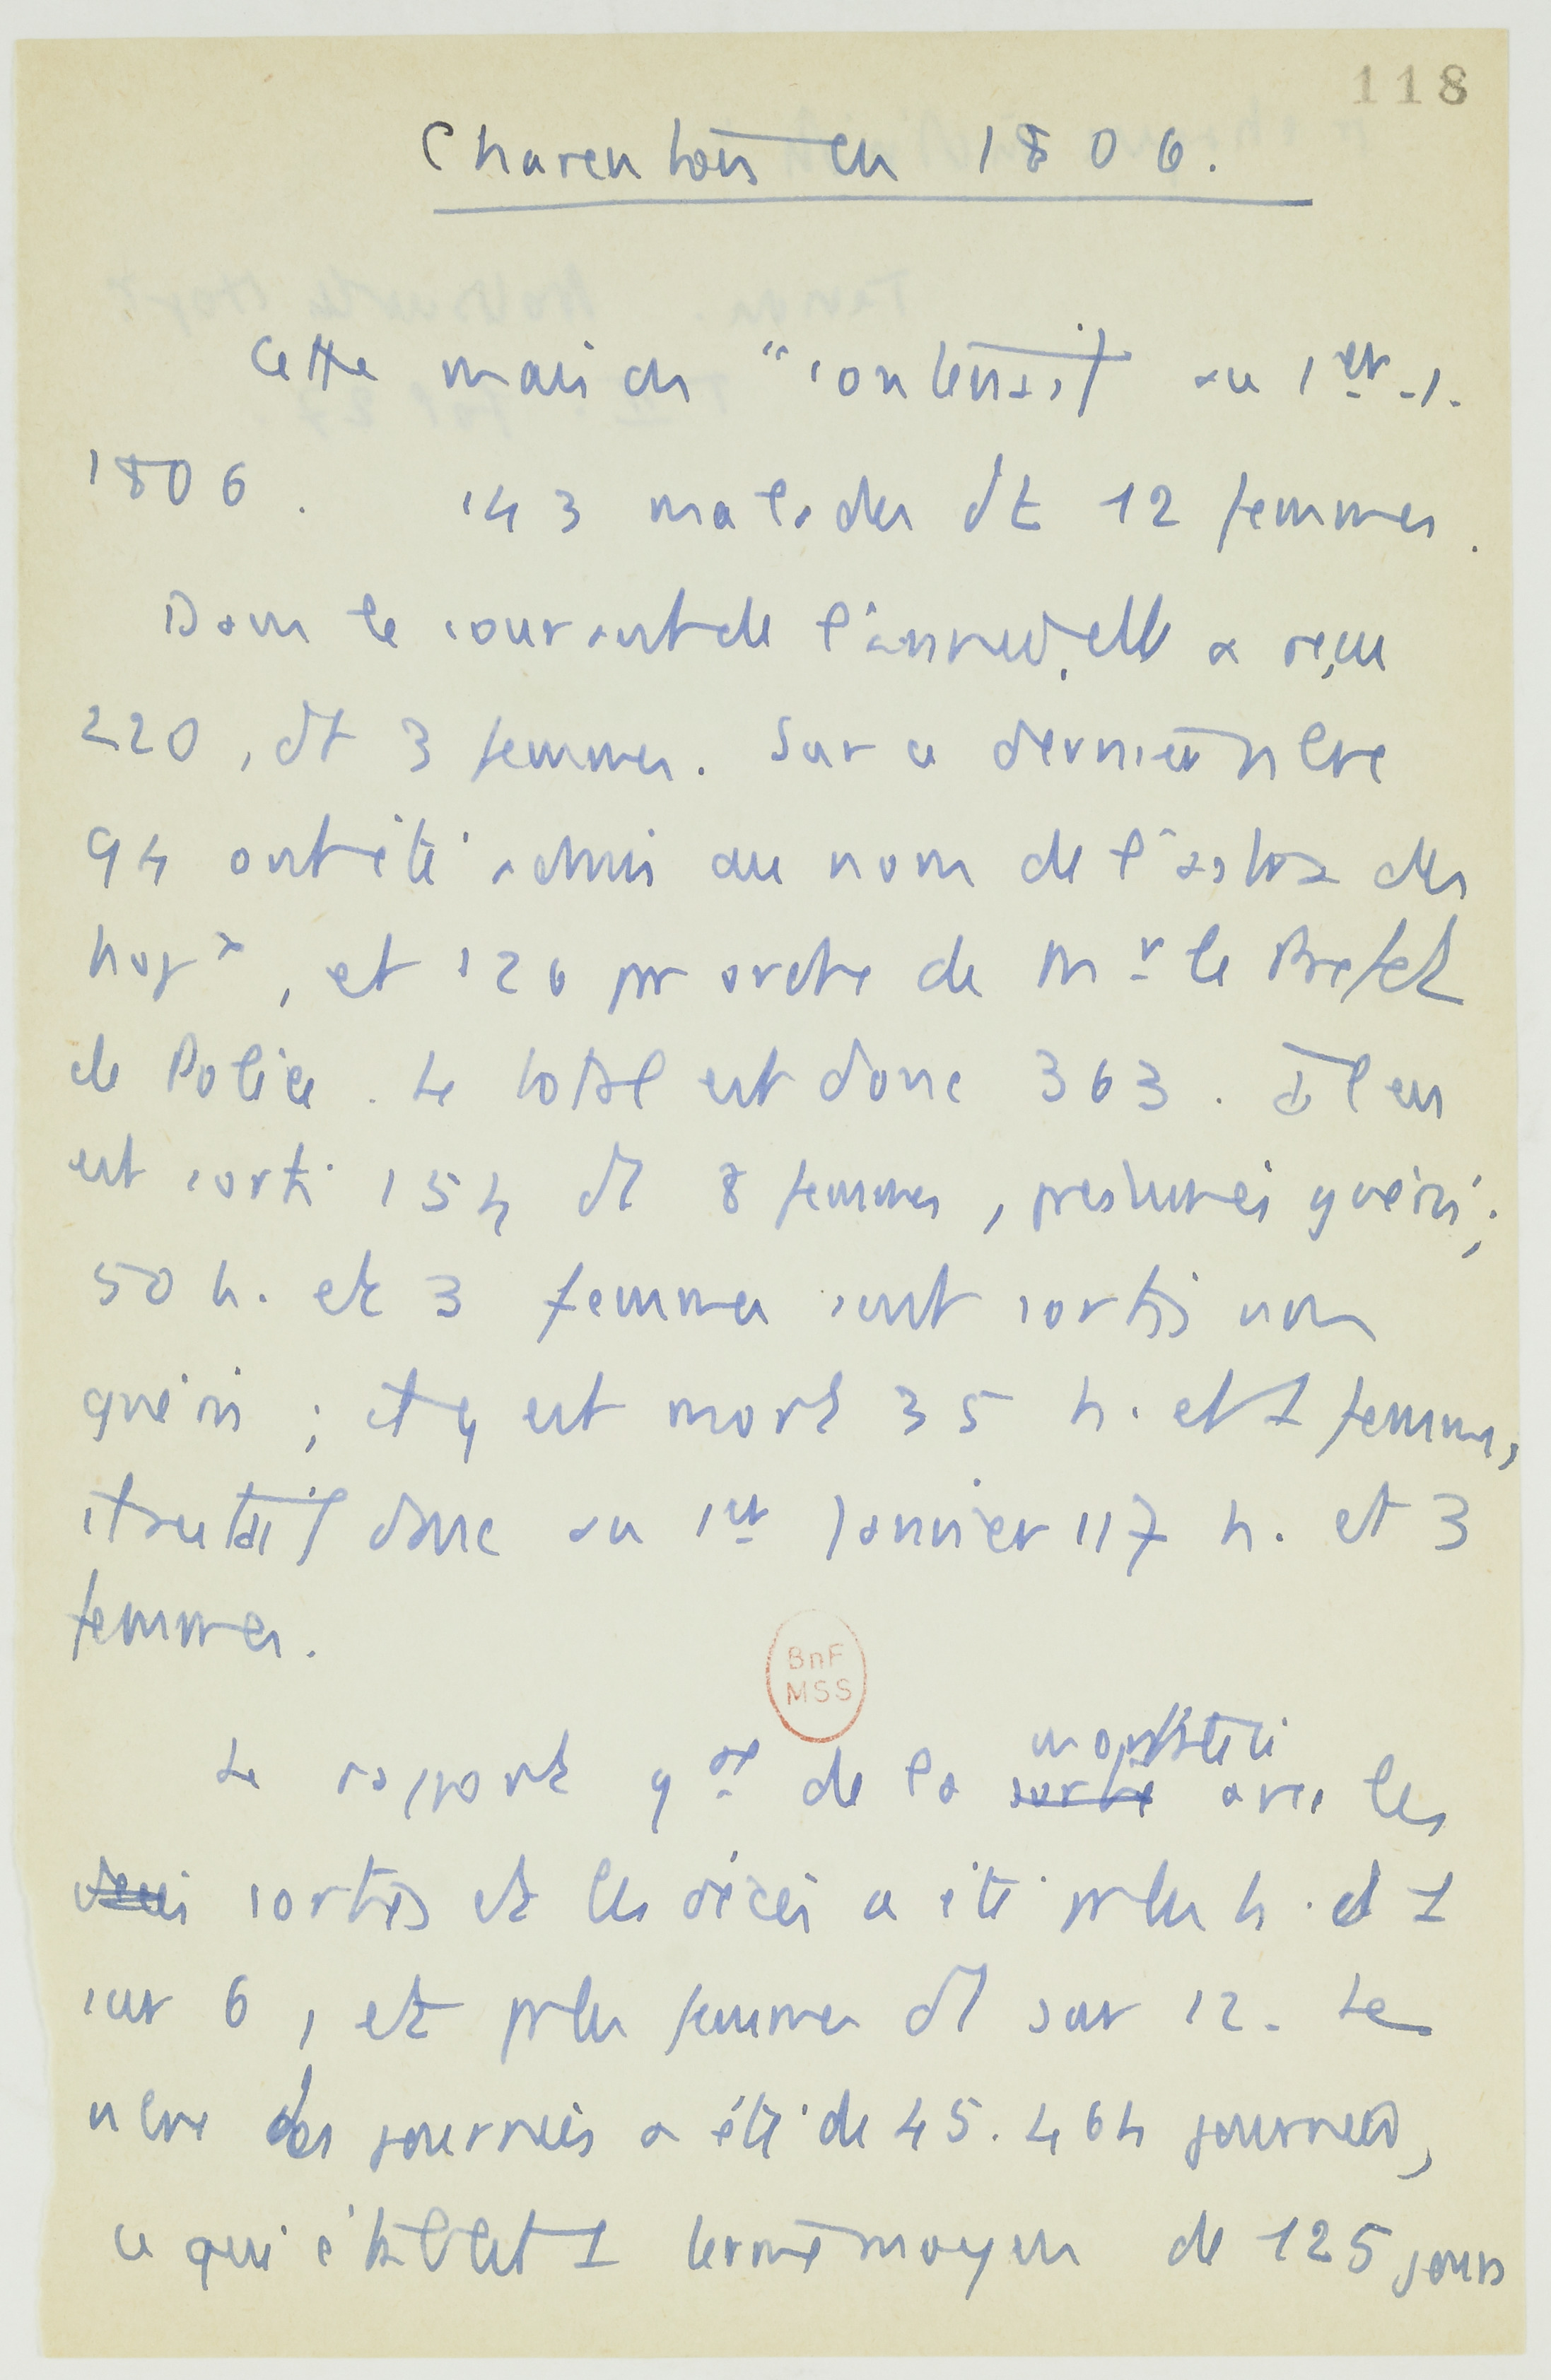 118
Charenton en 1806.
Cette maison "contenait au 1er. J.
1806. 143 malades dt 12 femmes.
Dans le courant de l'année, elle a reçu
220, dt 3 femmes. Sur ce dernier nbre
94 ont été admis au nom de l'adm des
hopx, et 126 pr ordre de Mr le Préfet
de Police. Le total est donc 363. Il en
est sorti 154 dt 8 femmes, présumés guéris;
50 h. et 3 femmes sont sortis non
guéris ; il y est mort 35 h. et 1 femme,
il restait donc au 1er Janvier 117 h. et 3
femmes.
BnF
MSS
mortalité
Le rapport gal de la sortie avec les
sortis et les décès a été pr les h. d 1
sur 6, et pr les femmes d1 sur 12. Le
nbre des journées a été de 45.464 journées,
ce qui établit 1 terme moyen de 125 jours